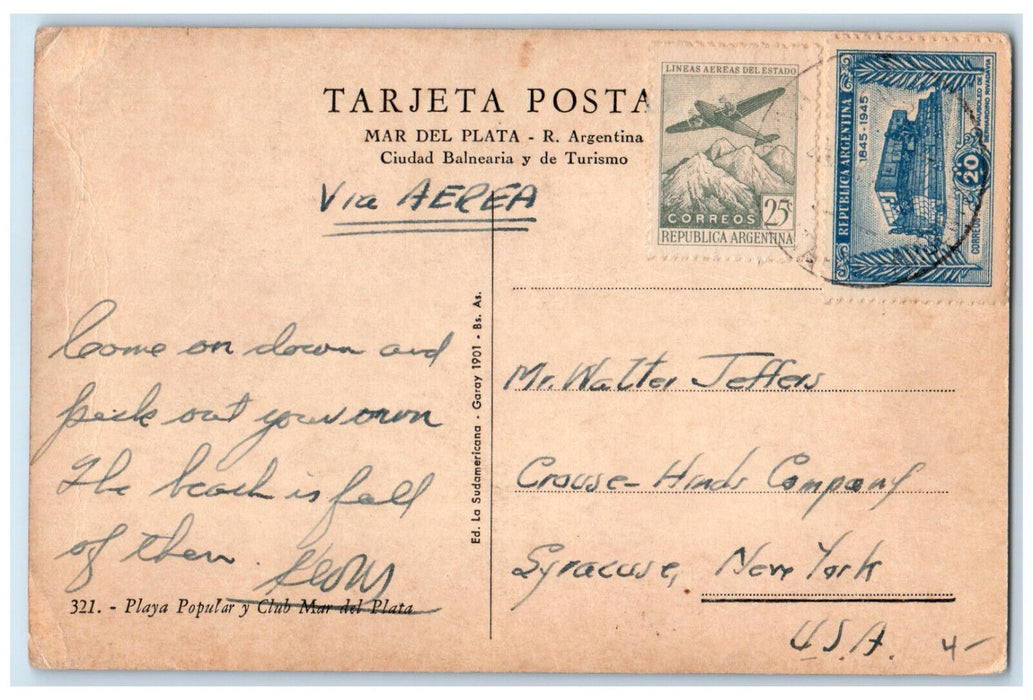 TARJETA POSTA
MAR DEL PLATA - R. Argentina
Ciudad Balnearia y de Turismo
Via AEREA
LINEAS AEREAS DEL ESTADO
CORREOS 25c
REPUBLICA ARGENTINA
REPUBLICA ARGENTINA
1845-1945
20
MAUSOLEO DE BERNARDINO RIVADAVIA
Come on down and
pick out your own
The beach is full
of them.
321. - Playa Popular y Club Mar del Plata
Ed. La Sudamericana - Garay 1901 - Bs. As.
Mr. Walter Jeffers
Crouse-Hinds Company
Syracuse, New York
U.S.A.
4-